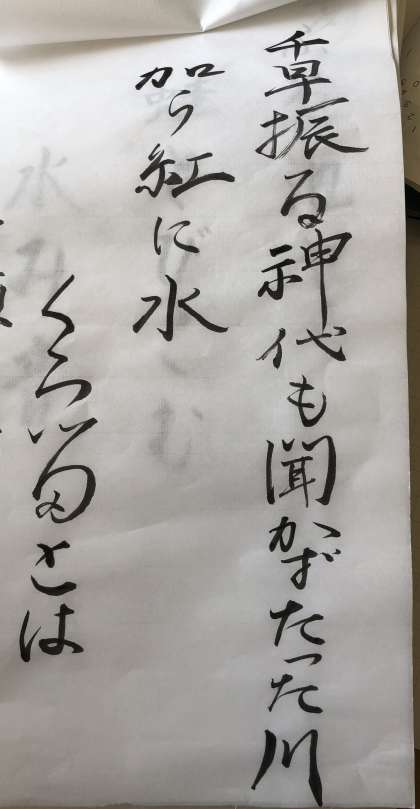 千早振る神代も聞かずたつた川
加ら紅に水
くく留とは